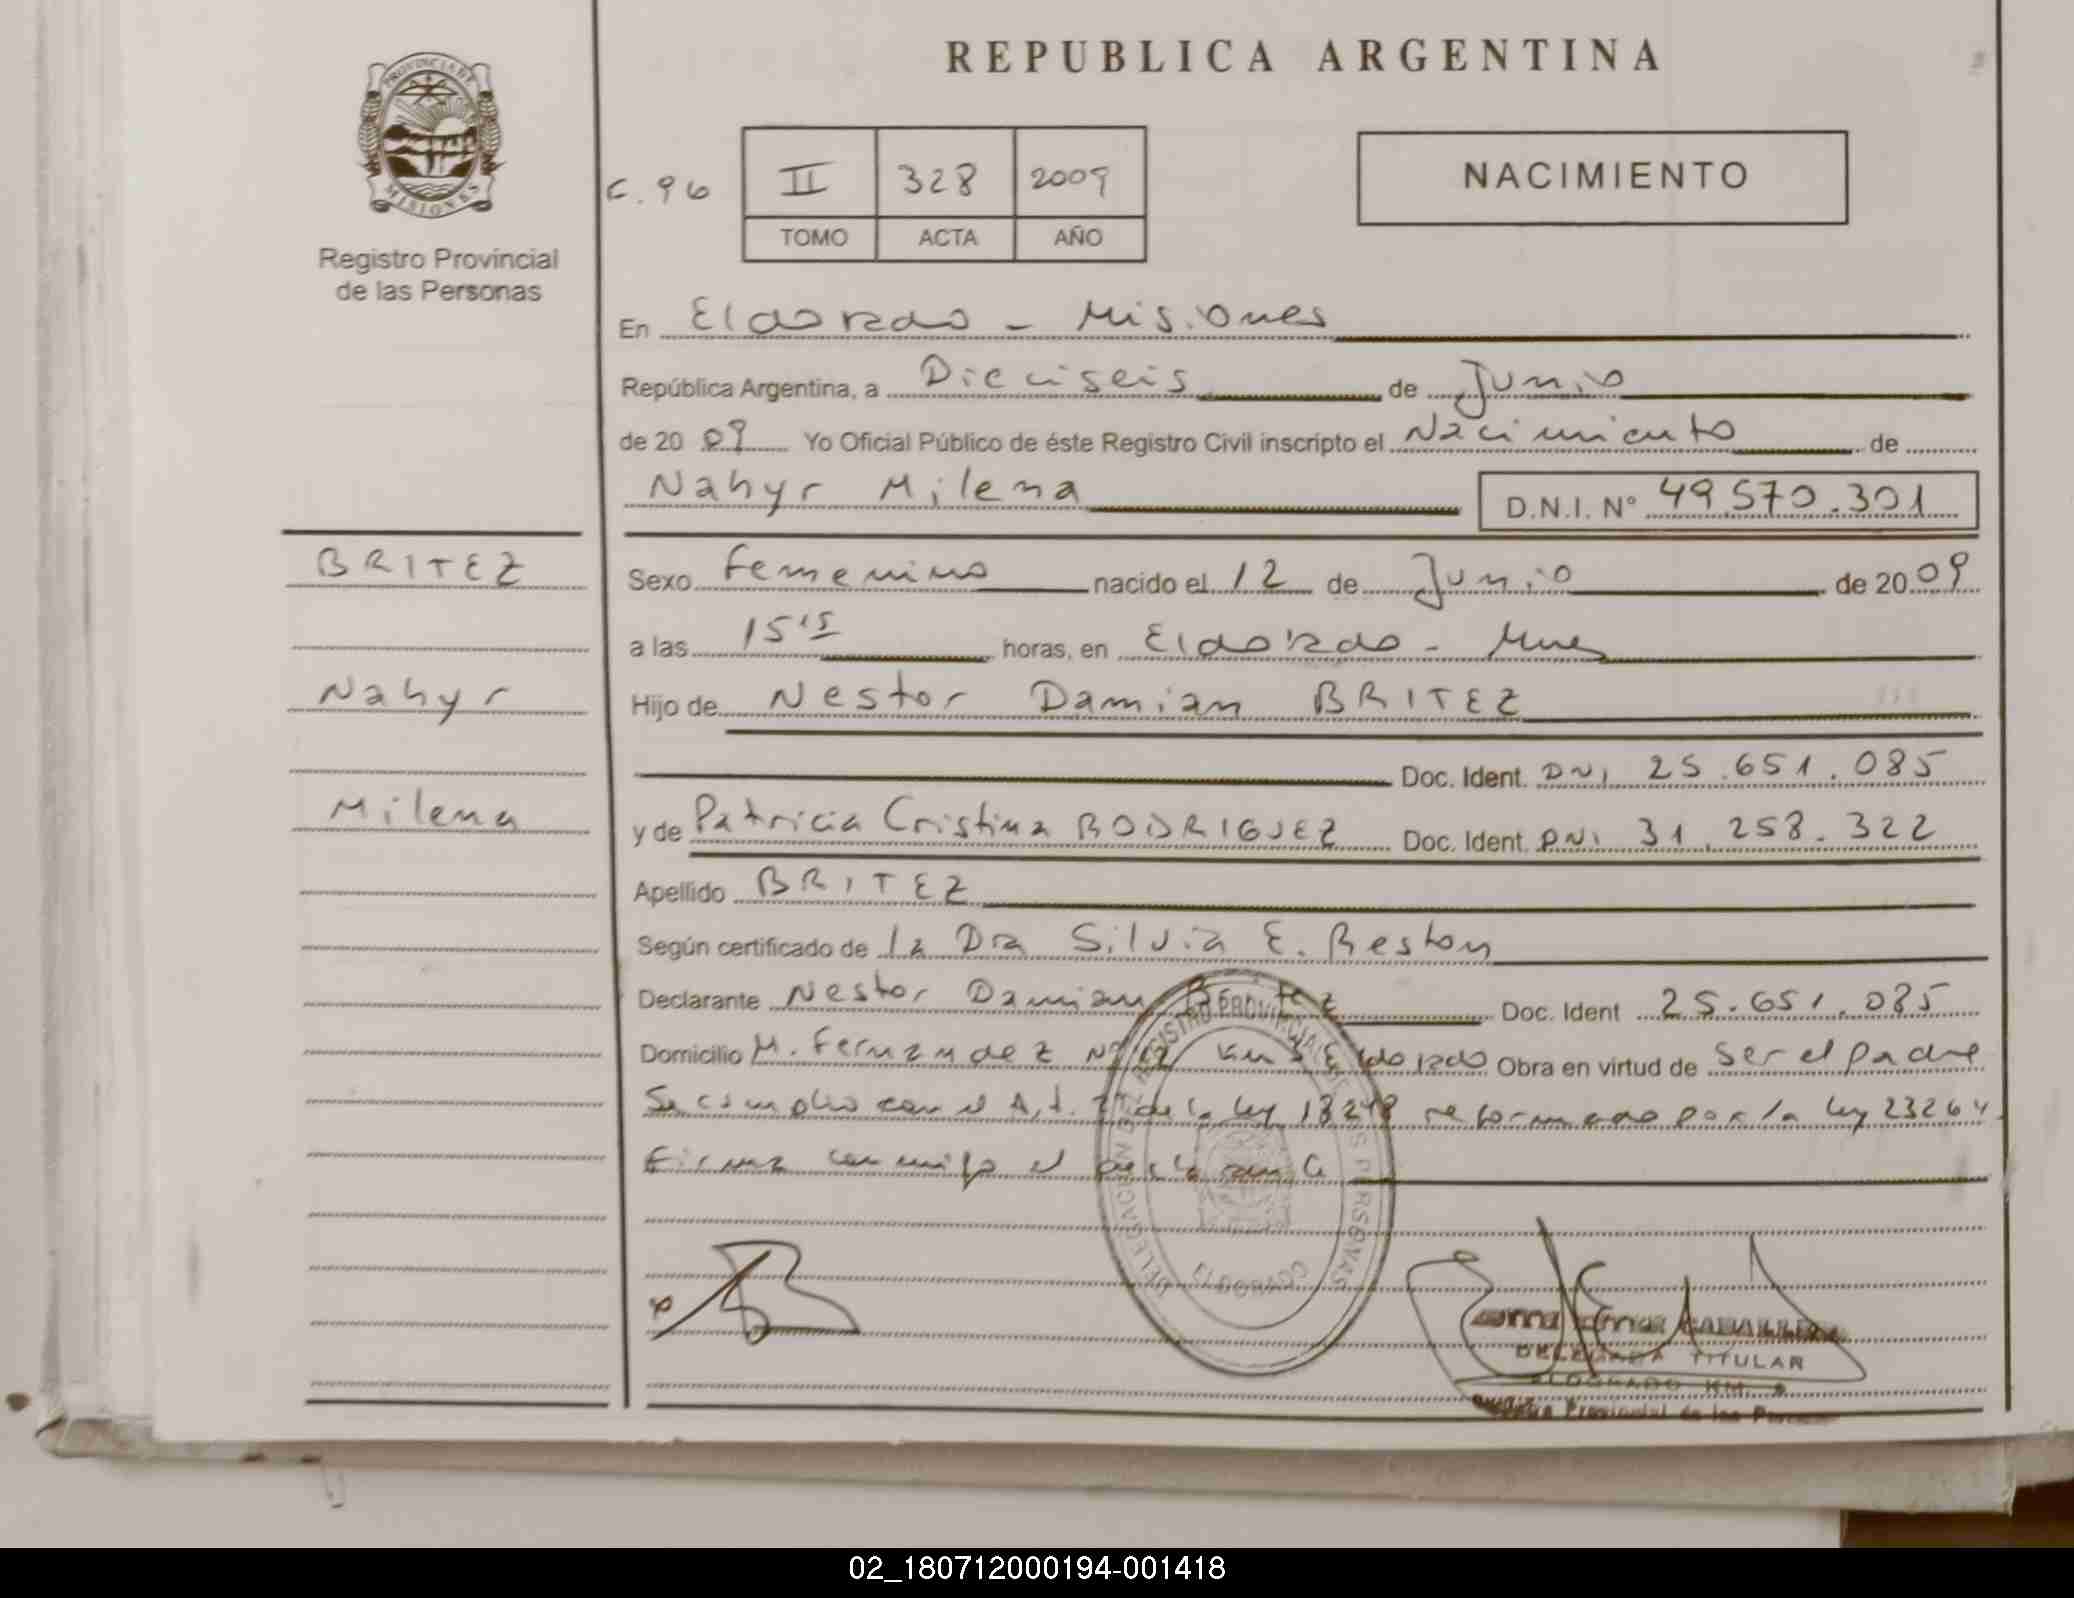 REPUBLICA ARGENTINA
PROVINCIA DE
MISIONES
Registro Provincial
de las Personas
NACIMIENTO
II 328 2009
TOMO ACTA AÑO
En Eldorado - Misiones
República Argentina, a Dieciseis de Junio
de 20 09 Yo Oficial Público de éste Registro Civil inscripto el Nacimiento de
Nahyr Milena D.N.I. N° 49.570.301
BRITEZ
Nahyr
Milena
Sexo Femenino nacido el 12 de Junio de 20 09
a las 15 15 horas, en Eldorado - Mnes
Hijo de Nestor Damian BRITEZ
Doc. Ident. DNI 25.651.085
y de Patricia Cristina RODRIGUEZ Doc. Ident. DNI 31.258.322
Apellido BRITEZ
Según certificado de la Dra Silvia E. Reston
Declarante Nestor Damian Britez Doc. Ident 25.651.085
Domicilio M. Fernandez Km Eldorado Obra en virtud de Ser el padre
Se cumplio con el Art. de la ley 18248 reformado por la ley 23264
Firma conmigo el declarante
DELEGACION DEL REGISTRO PROVINCIAL DE LAS PERSONAS
ELDORADO
CABALLERO
DELEGADA TITULAR
ELDORADO KM. 9
Provincial de las Personas
02_180712000194-001418